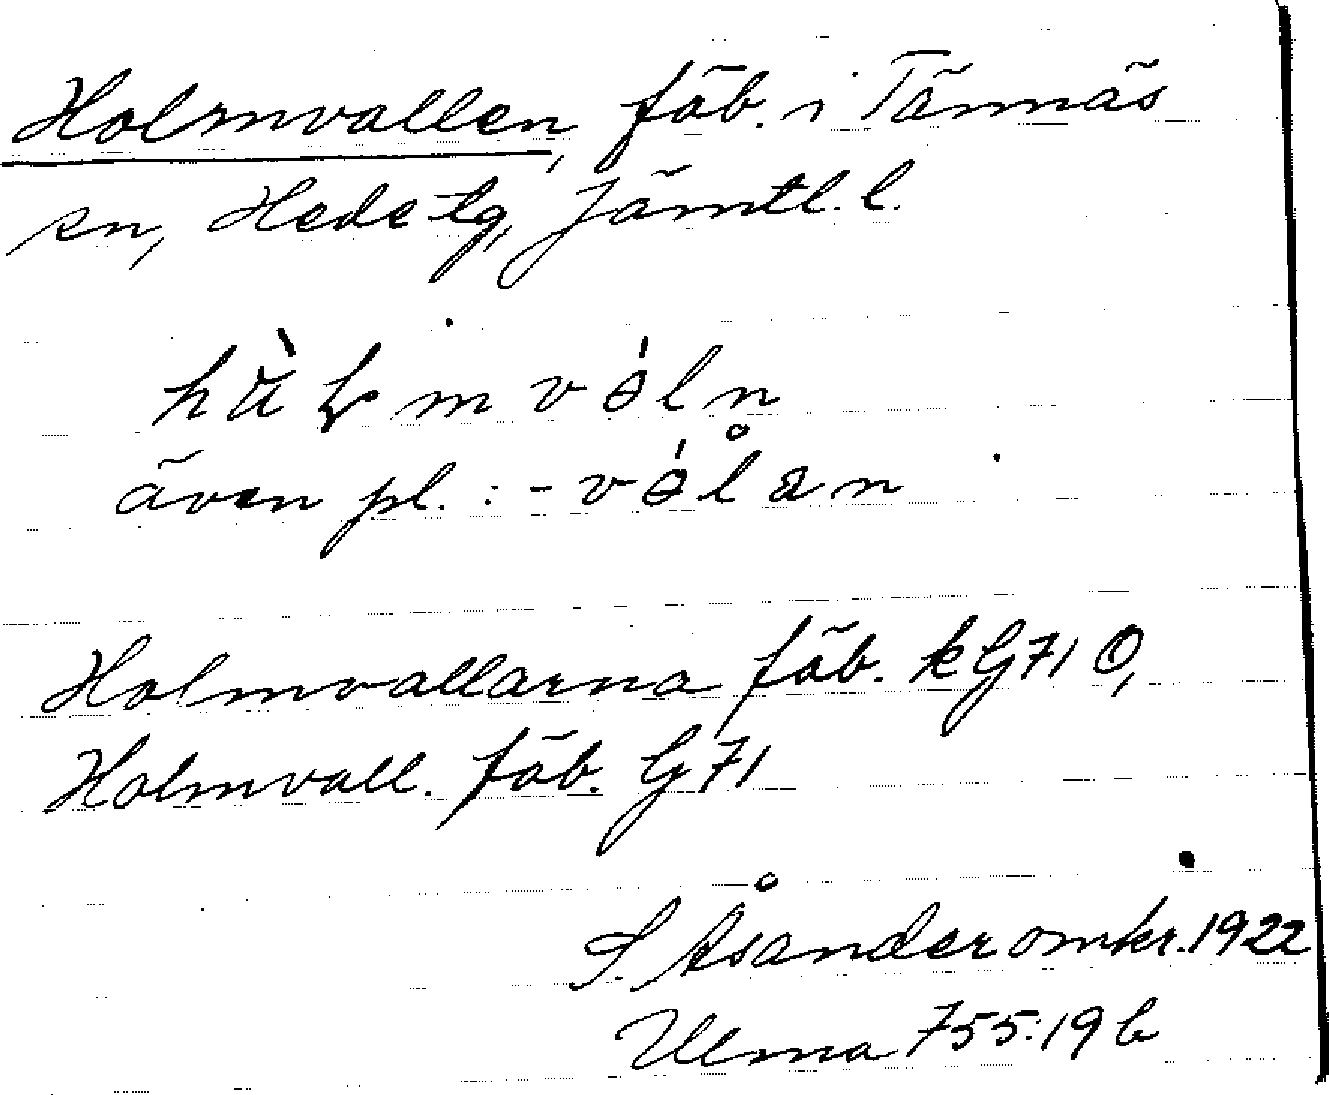 Holmvallen, fäb. i Tännäs
sn, Hede tg, Jämtl. l.
hàɽm vǿln
även pl. : - vǿl̊an
Holmvallarna fäb. k G71 O,
Holmvall. fäb. G71
S. Åsander omkr. 1922
Ulma 755:19 b